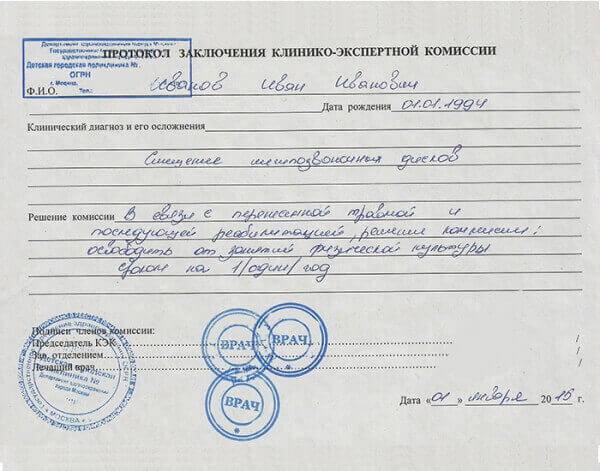 Детская городская поликлиника №
ОГРН
г. Москва,
Тел.:
ПРОТОКОЛ ЗАКЛЮЧЕНИЯ КЛИНИКО-ЭКСПЕРТНОЙ КОМИССИИ
Ф.И.О. Иванов Иван Иванович
Дата рождения 01.01.1994
Клинический диагноз и его осложнения
Смещение межпозвоночных дисков
Решение комиссии В связи с перенесенной травмой и
последующей реабилитацией, решили комиссии:
освободить от занятий физической культуры
сроком на 1/один/ год
Подписи членов комиссии:
Председатель КЭК
Зав. отделением
Лечащий врач
ВРАЧ
ВРАЧ
ВРАЧ
Детская городская
поликлиника №
Департамент здравоохранения
города Москвы
г. МОСКВА
Дата «01» января 2015 г.